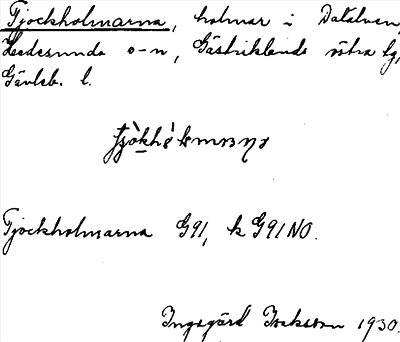 Tjockholmarna, holmar i Dalälven,
Hedesunda s-n, Gästriklands östra tg,
Gävleb. l.
Tjockholmarna G91, k G91 NO.
Ingegärd Isakson 1930.